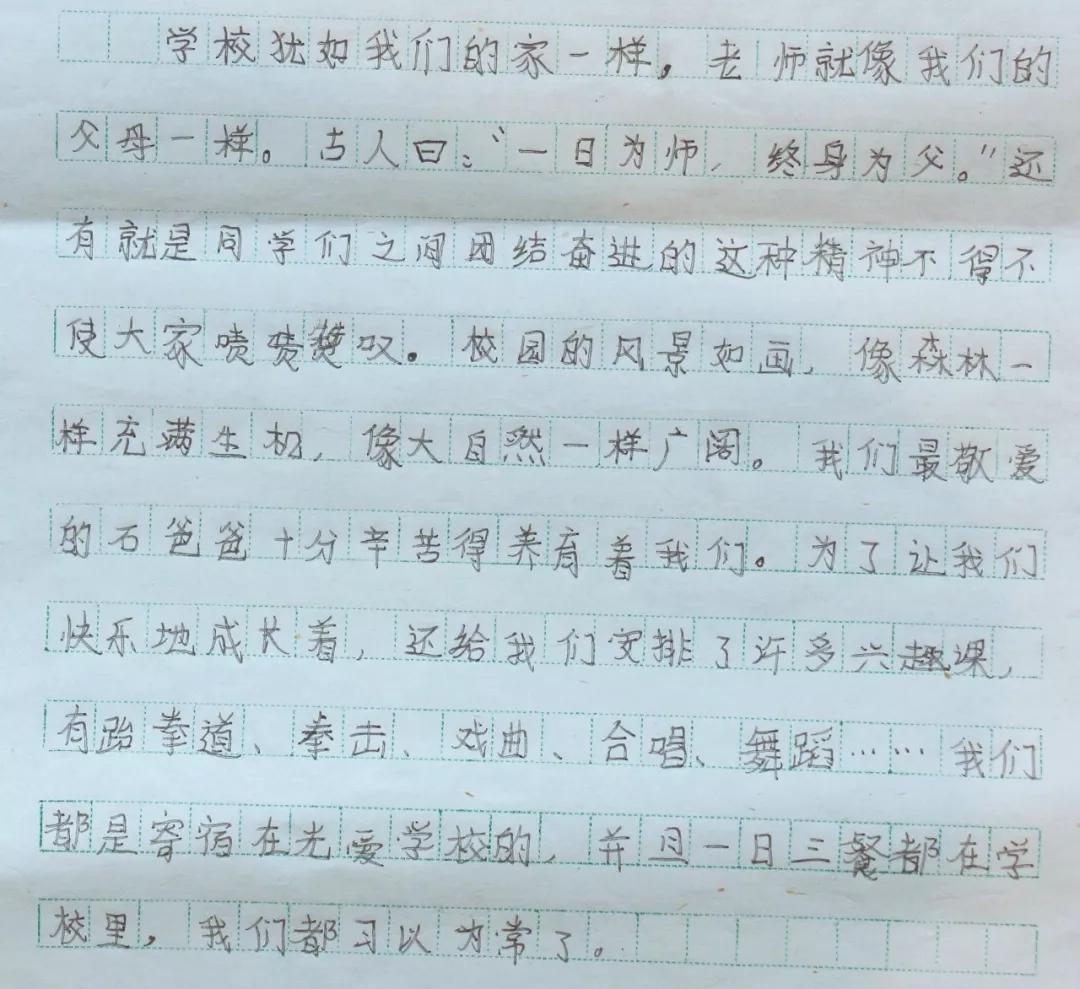 学校犹如我们的家一样，老师就像我们的
父母一样。古人曰：“一日为师，终身为父。”还
有就是同学们之间团结奋进的这种精神不得不
使大家啧啧赞叹。校园的风景如画，像森林一
样充满生机，像大自然一样广阔。我们最敬爱
的石爸爸十分辛苦得养育着我们。为了让我们
快乐地成长着，还给我们安排了许多兴趣课，
有跆拳道、拳击、戏曲、合唱、舞蹈……我们
都是寄宿在光爱学校的，并且一日三餐都在学
校里，我们都习以为常了。